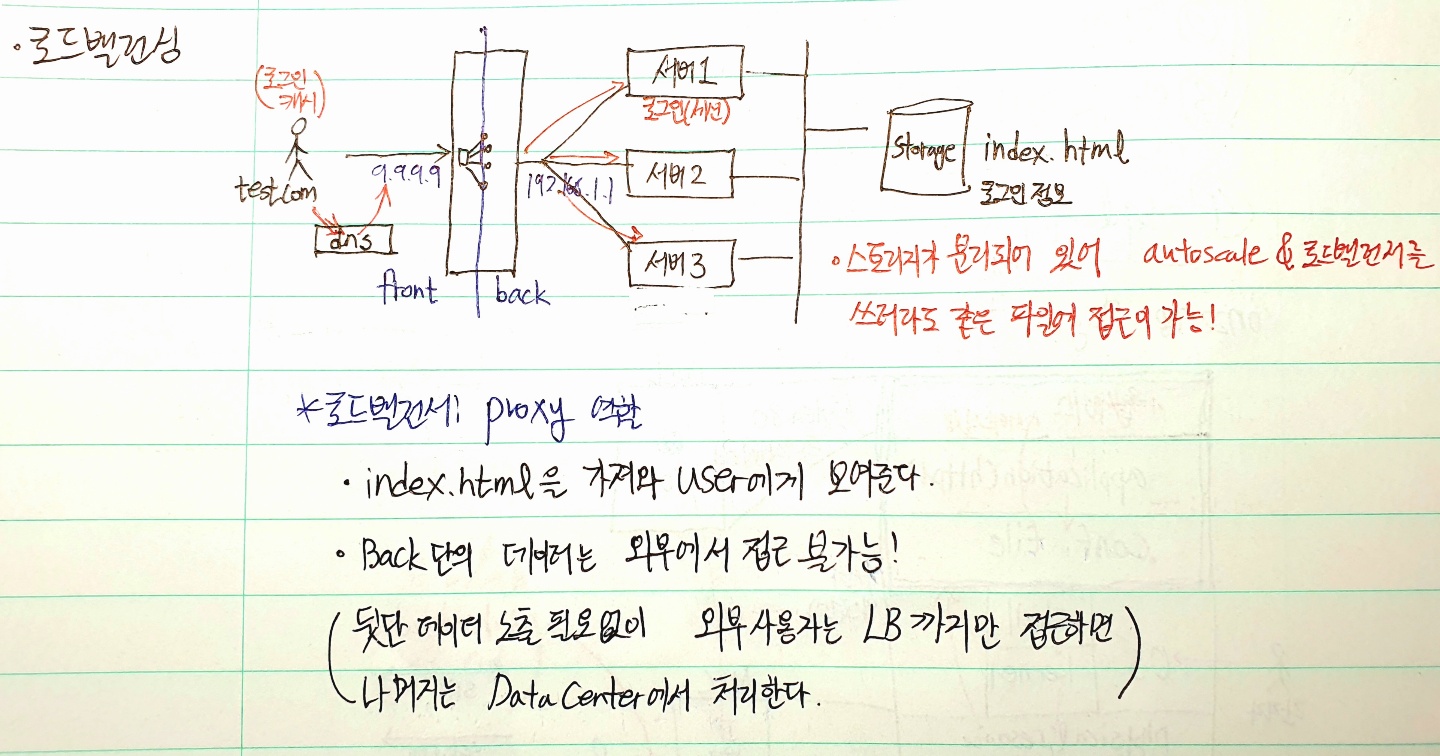 · 로드밸런싱
(로그인
캐시)
test.com
dns
9.9.9.9
front
back
192.168.1.1
서버1
로그인(세션)
서버2
서버3
Storage
index.html
로그인 정보
· 스토리지가 분리되어 있어 autoscale & 로드밸런서를
쓰더라도 같은 파일에 접근이 가능!
*로드밸런서; proxy 역할
· index.html을 가져와 user에게 보여준다.
· Back단의 데이터는 외부에서 접근 불가능!
(뒷단 데이터 노출 필요없이 외부 사용자는 LB까지만 접근하면
나머지는 Data Center에서 처리한다.)